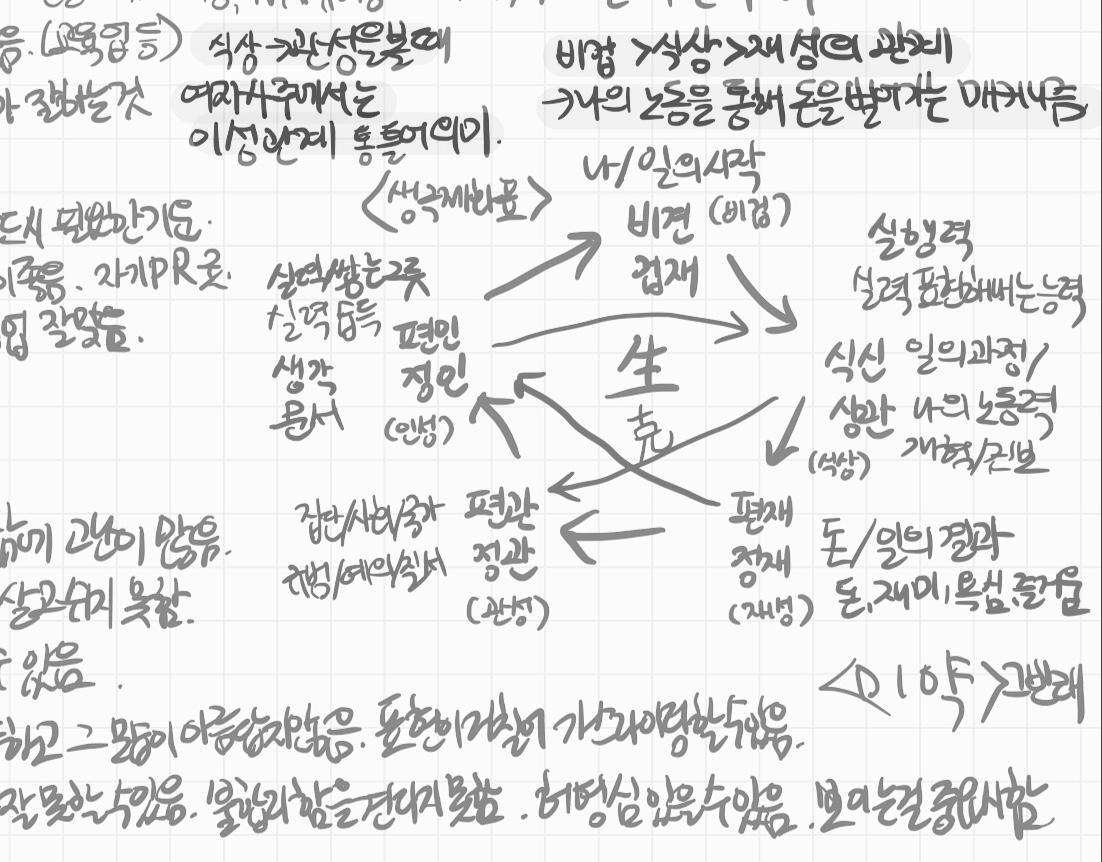 음. (교육업 등)
식상→관성을볼때
비겁 >식상>재성의 관계
잘하는것
여자사주에서는
→나의 노동을 통해 돈을 벌어가는 매커니즘
이성관계 통틀어 의미.
나/일의시작
<생극제화표>
비견 (비겁)
겁재
필요한기운.
좋음. 자기PR 굿.
업 잘맞음.
실력쌓는그릇
실력 습득
편인
생각
정인
문서
(인성)
生
克
실행력
실력표현해내는능력
식신 일의과정/
상관 나의노동력
(식상) 개혁/진보
집단/사회/국가
편관
규범/예의/질서
정관
(관성)
편재
돈/일의 결과
정재
돈,재미,욕심,즐거움
(재성)
고난이 많음.
살고싶지 못함.
있음.
반대
하고 그 많이 아름답지않음. 표현이거칠어
잘못할수있음. 불합리함을견디지못함. 허영심있을수있음. 보이는걸중요시함